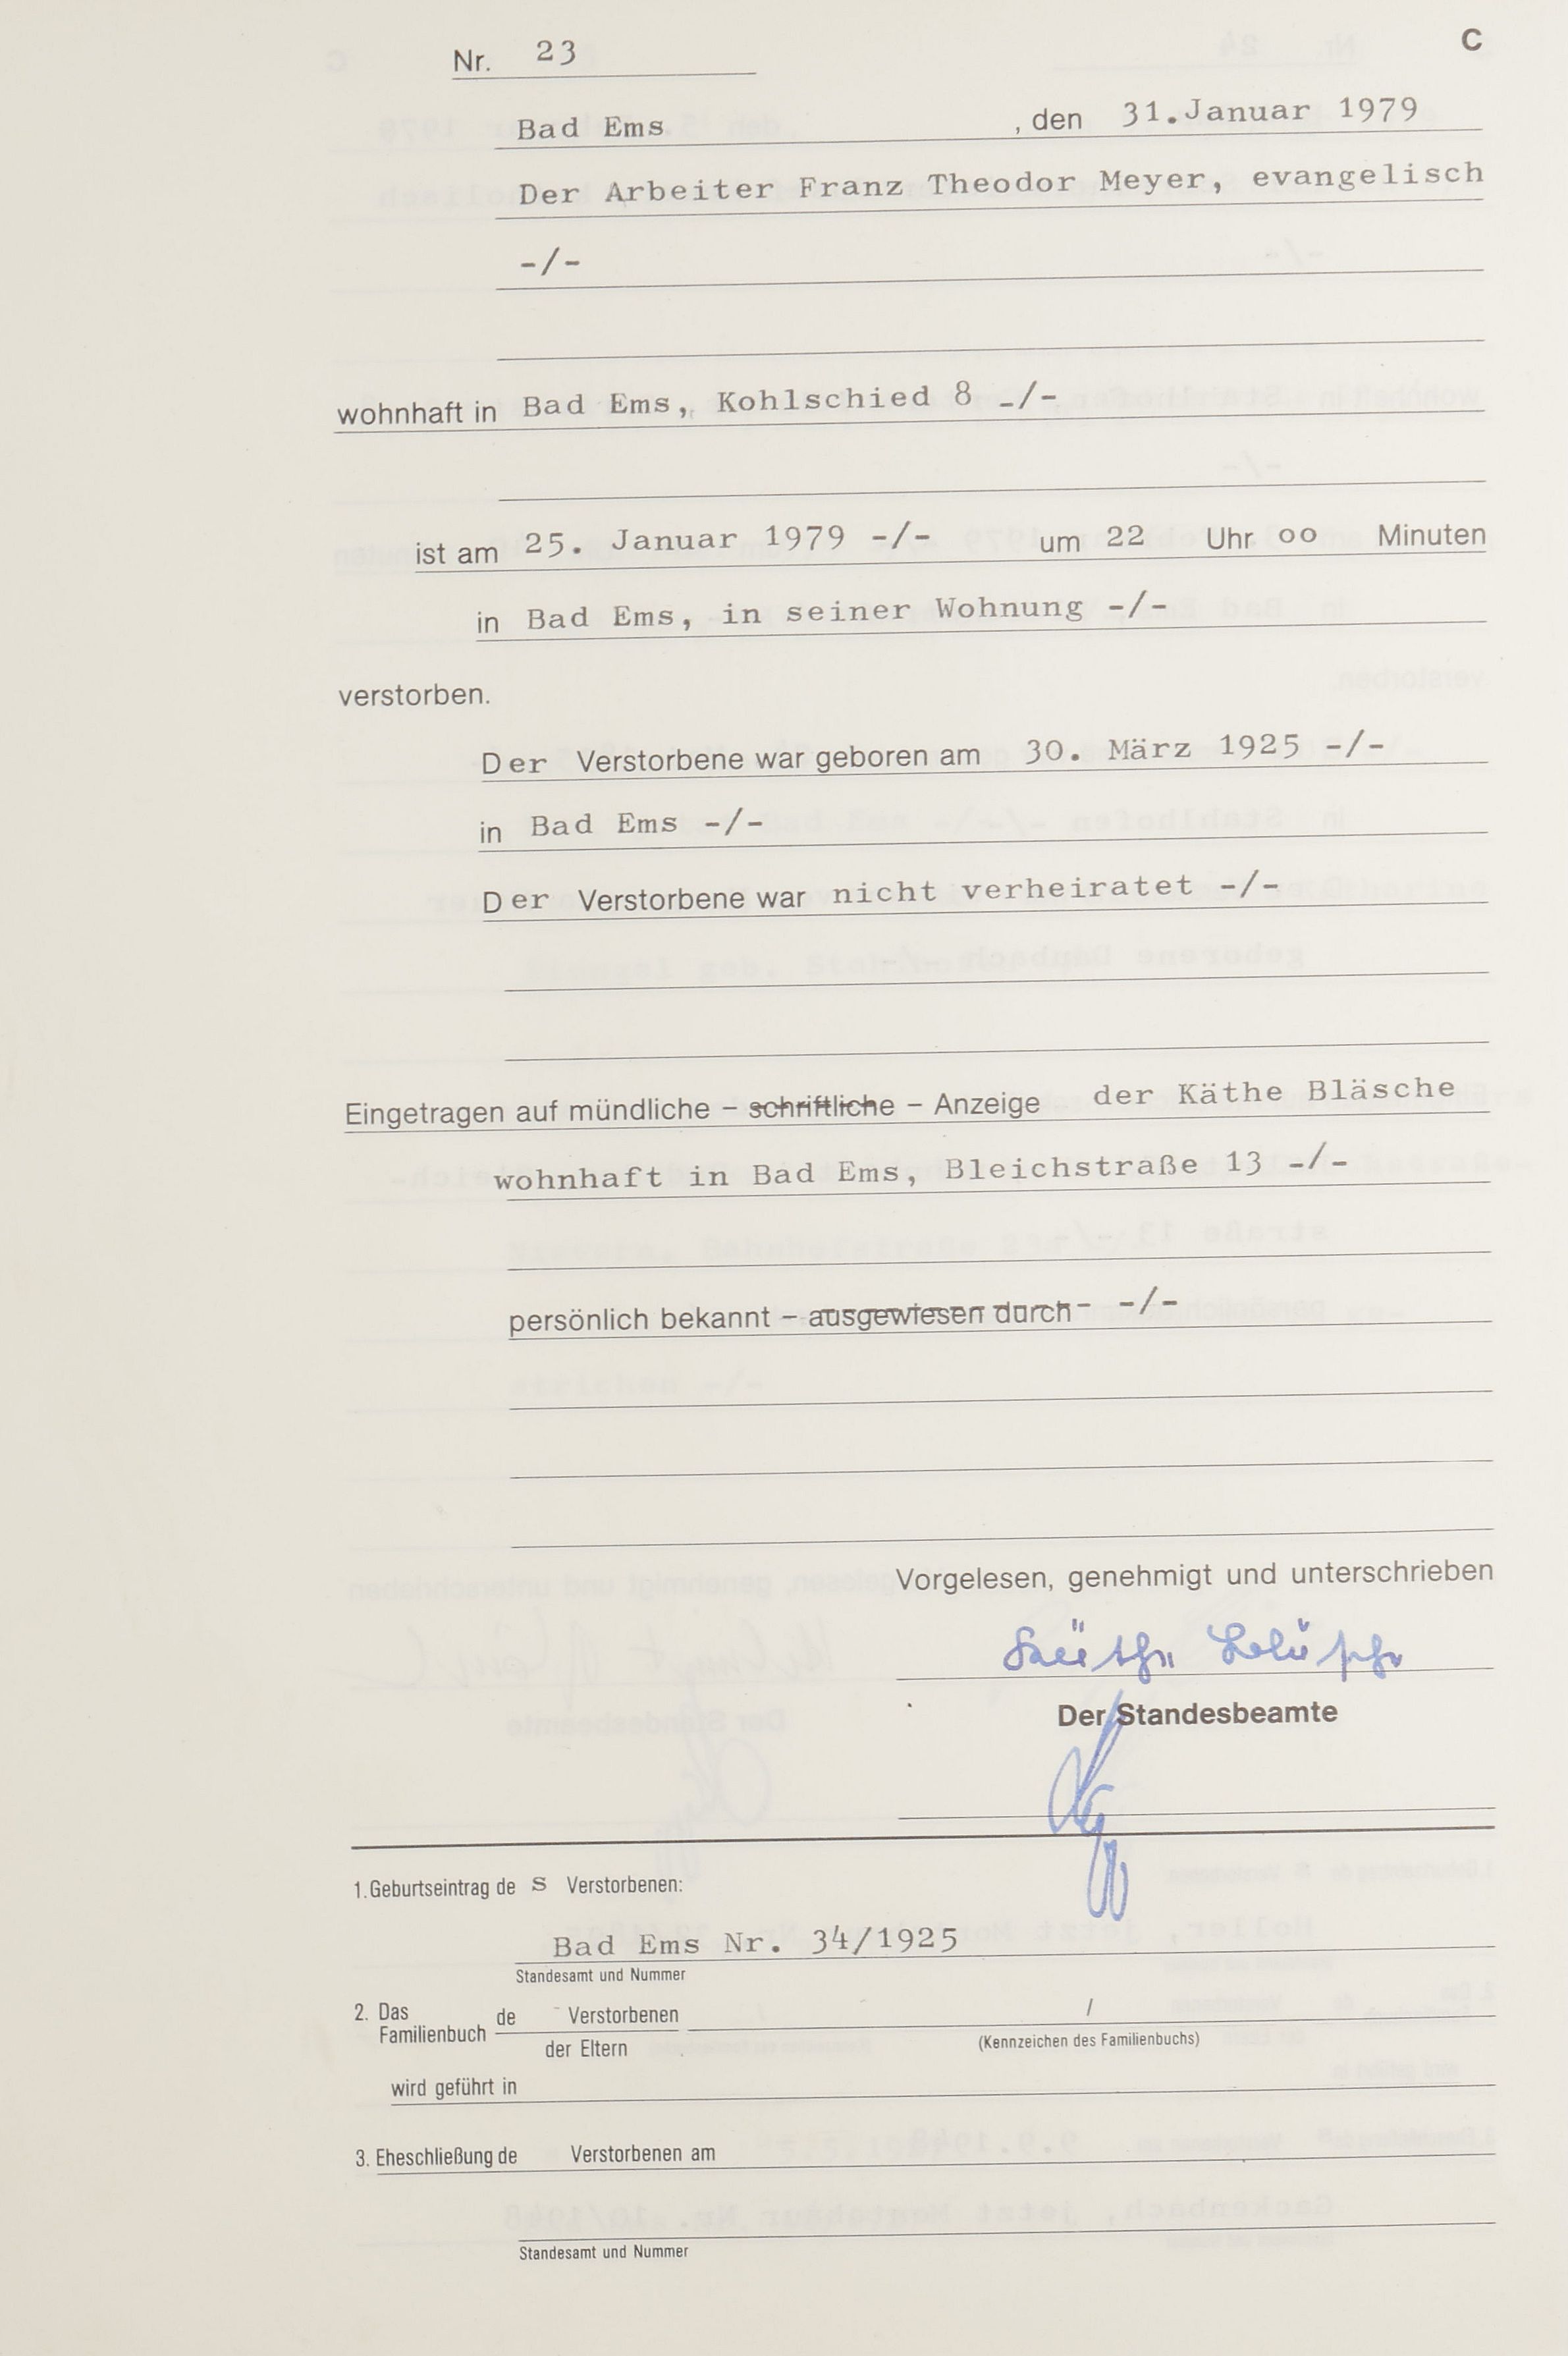 Nr. 23
C
Bad Ems , den 31.Januar 1979
Der Arbeiter Franz Theodor Meyer, evangelisch
-/-
wohnhaft in Bad Ems, Kohlschied 8 -/-
ist am 25. Januar 1979 -/- um 22 Uhr oo Minuten
in Bad Ems, in seiner Wohnung -/-
verstorben.
Der Verstorbene war geboren am 30. März 1925 -/-
in Bad Ems -/-
Der Verstorbene war nicht verheiratet -/-
Eingetragen auf mündliche – schriftliche – Anzeige der Käthe Bläsche
wohnhaft in Bad Ems, Bleichstraße 13 -/-
persönlich bekannt – ausgewiesen durch - -/-
Vorgelesen, genehmigt und unterschrieben
Käthe Bläsche
Der Standesbeamte
1. Geburtseintrag de s Verstorbenen:
Bad Ems Nr. 34/1925
Standesamt und Nummer
2. Das Familienbuch de Verstorbenen /
der Eltern (Kennzeichen des Familienbuchs)
wird geführt in
3. Eheschließung de Verstorbenen am
Standesamt und Nummer